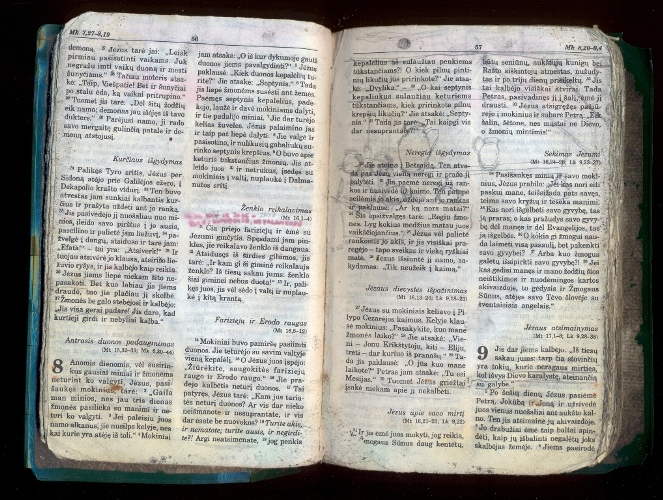 Mk 7,27–8,19
56
demoną. Jėzus tarė jai: „Leisk
pirmiau pasisotinti vaikams. Juk
negražu imti vaikų duoną ir mesti
šunyčiams." Tačiau moteris atsa-
kė: „Taip, Viešpatie! Bet ir šunyčiai
po stalu ėda, ką vaikai pritrupina."
Tuomet jis tarė: „Dėl šitų žodžių
eik namo; demonas jau išėjęs iš tavo
dukters." Parėjusi namo, ji rado
savo mergaitę gulinčią patale ir de-
moną atstojusį.
Kurčiaus išgydymas
Palikęs Tyro sritis, Jėzus per
Sidoną atėjo prie Galilėjos ežero, į
Dekapolio krašto vidurį. Ten buvo
atvestas jam sunkiai kalbantis kur-
čius ir prašyta uždėti ant jo ranką.
Jis pasivedėjo jį nuošaliau nuo mi-
nios, įleido savo pirštus į jo ausis,
paseilino ir palietė jam liežuvį, pa-
žvelgė į dangų, atsiduso ir tarė jam:
„Efata!" – tai yra: „Atsiverk!" Ir
tuojau atsivėrė jo klausa, atsirišo lie-
žuvio ryšys, ir jis kalbėjo kaip reikia.
Jėzus jiems liepė niekam šito ne-
pasakoti. Bet kuo labiau jis jiems
draudė, tuo jie plačiau jį skelbė.
Žmonės be galo stebėjosi ir kalbėjo:
„Jis visa gerai padarė! Jis daro, kad
kurtieji girdi ir nebyliai kalba."
Antrasis duonos padauginimas
(Mt 15,32–39; Mk 6,30–44)
8 Anomis dienomis, vėl susirin-
kus gausiai miniai ir žmonėms
neturint ko valgyti, Jėzus, pasi-
šaukęs mokinius, tarė: „Gaila
man minios, nes jau trys dienos
žmonės pasilieka su manimi ir ne-
turi ko valgyti. Jei paleisiu juos
namo alkanus, jie nusilps kelyje, nes
kai kurie yra atėję iš toli." Mokiniai
jam atsakė: „O iš kur dykumoje gauti
duonos jiems pavalgydinti?" Jėzus
paklausė: „Kiek duonos kepalėlių tu-
rite?" Jie atsakė: „Septynis." Tada
jis liepė žmonėms susėsti ant žemės.
Paėmęs septynis kepalėlius, padė-
kojo, laužė ir davė mokiniams dalyti,
ir tie padalijo miniai. Jie dar turėjo
kelias žuveles. Jėzus palaimino jas
ir taip pat liepė dalyti. Jie valgė ir
pasisotino, ir nulikusių gabaliukų su-
rinko septynis krepšius. O buvo apie
keturis tūkstančius žmonių. Jis at-
leido juos ir netrukus, įsėdęs su
mokiniais į valtį, nuplaukė į Dalma-
nutos sritį.
Ženklo reikalavimas
(Mt 16,1–4)
Čia priėjo fariziejų ir ėmė su
Jėzumi ginčytis. Spęsdami jam pin-
kles, jie reikalavo ženklo iš dangaus.
Atsidusęs iš širdies gilumos, jis
tarė: „Ir kam gi ši giminė reikalauja
ženklo? Iš tiesų sakau jums: ženklo
šiai giminei nebus duota!" Ir, pali-
kęs juos, jis vėl sėdo į valtį ir irplau-
kė į kitą krantą.
Fariziejų ir Erodo raugas
(Mt 16,5–12)
Mokiniai buvo pamiršę pasiimti
duonos. Jie teturėjo su savimi valtyje
vieną kepalėlį. O Jėzus juos įspėjo:
„Žiūrėkite, saugokitės fariziejų
raugo ir Erodo raugo." Jie pra-
dėjo kalbėtis neturį duonos. Tai
patyręs, Jėzus tarė: „Kam jūs taria-
tės neturį duonos? Ar vis dar nieko
neišmanote ir nesuprantate, ir vis
dar esate be nuovokos? Turite akis,
ir nematote; turite ausis, ir negirdi-
te?! Argi neatsimenate, jog penkis
57
Mk 8,20–9,4
kepalėlius aš sulaužiau penkiems
tūkstančiams?! O kiek pilnų pinti-
nių likučių jūs pririnkote?" Jie atsa-
kė: „Dvylika." – „O kai septynis
kepaliukus sulaužiau keturiems
tūkstančiams, kiek pririnkote pilnų
krepšių likučių?" Jie atsakė: „Septy-
nis." Tada jis tarė: „Tai kaipgi vis
dar nesuprantate?"
Neregio išgydymas
Jie ateina į Betsaidą. Ten atve-
da pas Jėzų vieną neregį ir prašo jį
palytėti. Jis paėmė neregį už ran-
kos ir nusivedė už kaimo. Ten patepė
seilėmis jo akis, uždėjo ant jo rankas
ir paklausė: „Ar ką nors matai?"
Šis apsižvalgęs tarė: „Regiu žmo-
nes. Lyg kokius medžius matau juos
vaikščiojančius." Jėzus vėl palietė
rankomis jo akis, ir jis visiškai pra-
regėjo – tapo sveikas ir viską ryškiai
matė. Jėzus išsiuntė jį namo, sa-
kydamas: „Tik neužeik į kaimą."
Jėzaus dievystės išpažinimas
(Mt 16,13–20; Lk 9,18–21)
Jėzus su mokiniais keliavo į Pi-
lypo Cezarėjos kaimus. Kelyje klau-
sė mokinius: „Pasakykite, kuo mane
žmonės laiko?" Jie atsakė: „Vie-
ni – Jonu Krikštytoju, kiti – Eliju,
treti – dar kuriuo iš pranašų." Ta-
da jis paklausė: „O jūs kuo mane
laikote?" Petras jam atsakė: „Tu esi
Mesijas." Tuomet Jėzus griežtai
įsakė niekam apie jį nekalbėti.
Jėzus apie savo mirtį
(Mt 16,21–23; Lk 9,22)
Ir jis ėmė juos mokyti, jog reikia,
Žmogaus Sūnus daug kentėtų,
būtų seniūnų, aukštųjų kunigų bei
Rašto aiškintojų atmestas, nužudy-
tas ir po trijų dienų prisikeltų. Jis
tai kalbėjo visiškai atvirai. Tada
Petras, pasivadinęs jį į šalį, ėmė jį
drausti. Jėzus atsigręžęs pažiū-
rėjo į mokinius ir subarė Petrą: „Eik
šalin, šėtone, nes mąstai ne Dievo,
o žmonių mintimis!"
Sekimas Jėzumi
(Mt 16,24–28; Lk 9,23–27)
Pasišaukęs minią ir savo moki-
nius, Jėzus prabilo: „Jei kas nori eiti
paskui mane, teišsižada pats savęs,
teima savo kryžių ir teseka manimi.
Kas nori išgelbėti savo gyvybę, tas
ją praras; o kas pražudys savo gyvy-
bę dėl manęs ir dėl Evangelijos, tas
ją išgelbės. O kokia gi žmogui nau-
da laimėti visą pasaulį, bet pakenkti
savo gyvybei? Arba kuo žmogus
galėtų išsipirkti savo gyvybę? Jei
kas gėdisi manęs ir mano žodžių šios
neištikimos ir nuodėmingos kartos
akivaizdoje, to gėdysis ir Žmogaus
Sūnus, atėjęs savo Tėvo šlovėje su
šventaisiais angelais."
Jėzaus atsimainymas
(Mt 17,1–8; Lk 9,28–36)
9 Jis dar jiems kalbėjo: „Iš tiesų
sakau jums: tarp čia stovinčių
yra tokių, kurie neragaus mirties,
kol išvys Dievo karalystę, ateinančią
su galybe."
Po šešių dienų Jėzus pasiėmė
Petrą, Jokūbą ir Joną ir užsivedė
juos vienus nuošaliai ant aukšto kal-
no. Ten jis atsimainė jų akivaizdoje.
Jo drabužiai ėmė taip baltai spin-
dėti, kaip jų išbalinti negalėtų joks
skalbėjas žemėje. Jiems pasirodė